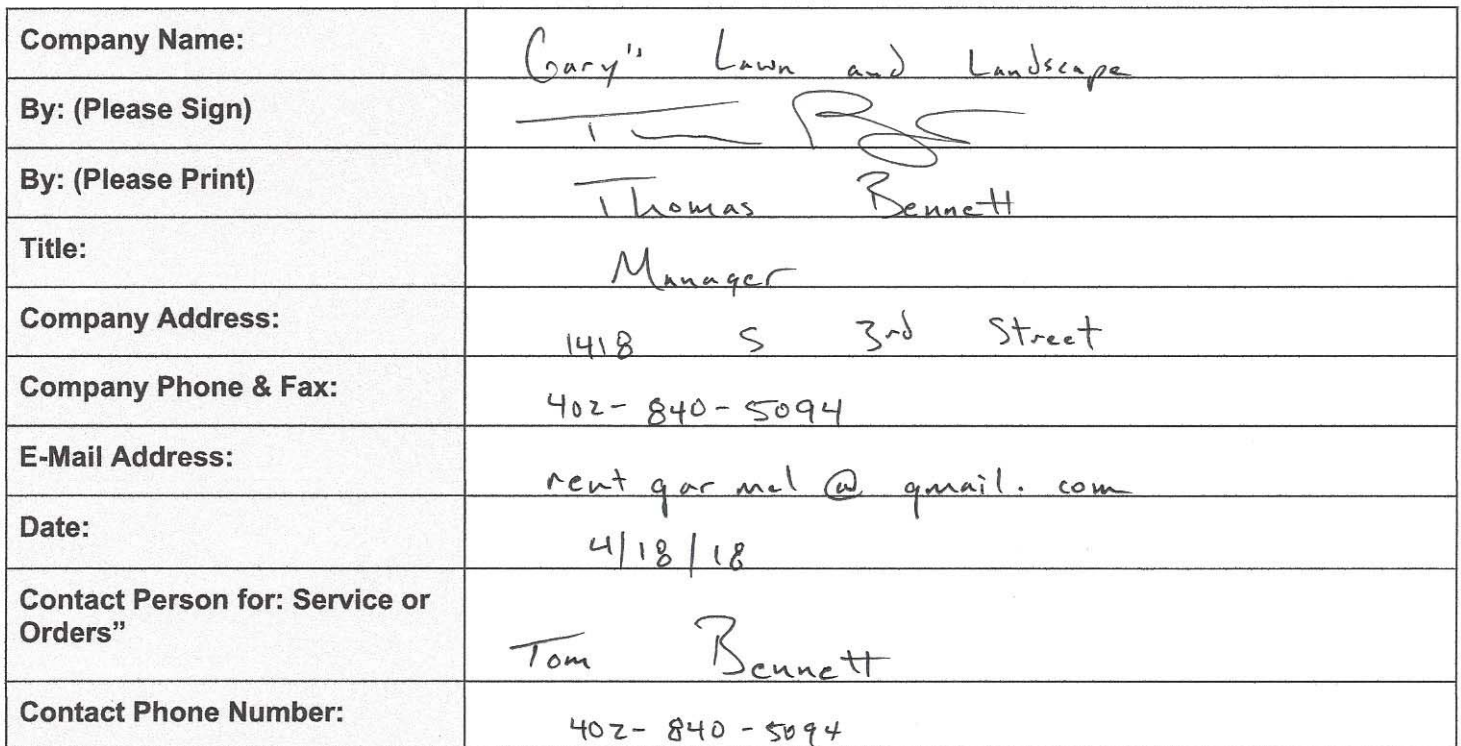 Company Name: Gary's Lawn and Landscape
By: (Please Sign)
By: (Please Print) Thomas Bennett
Title: Manager
Company Address: 1418 S 3rd Street
Company Phone & Fax: 402-840-5094
E-Mail Address: rentgarmel@gmail.com
Date: 4/18/18
Contact Person for: Service or
Orders” Tom Bennett
Contact Phone Number: 402-840-5094